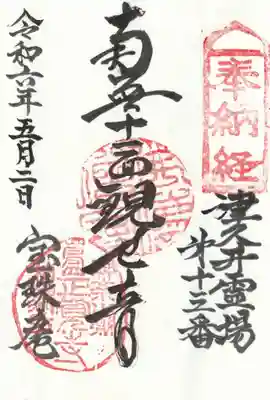 奉納経
津久井霊場
第十三番
南無十一面観世音
宝珠庵
令和六年五月二日